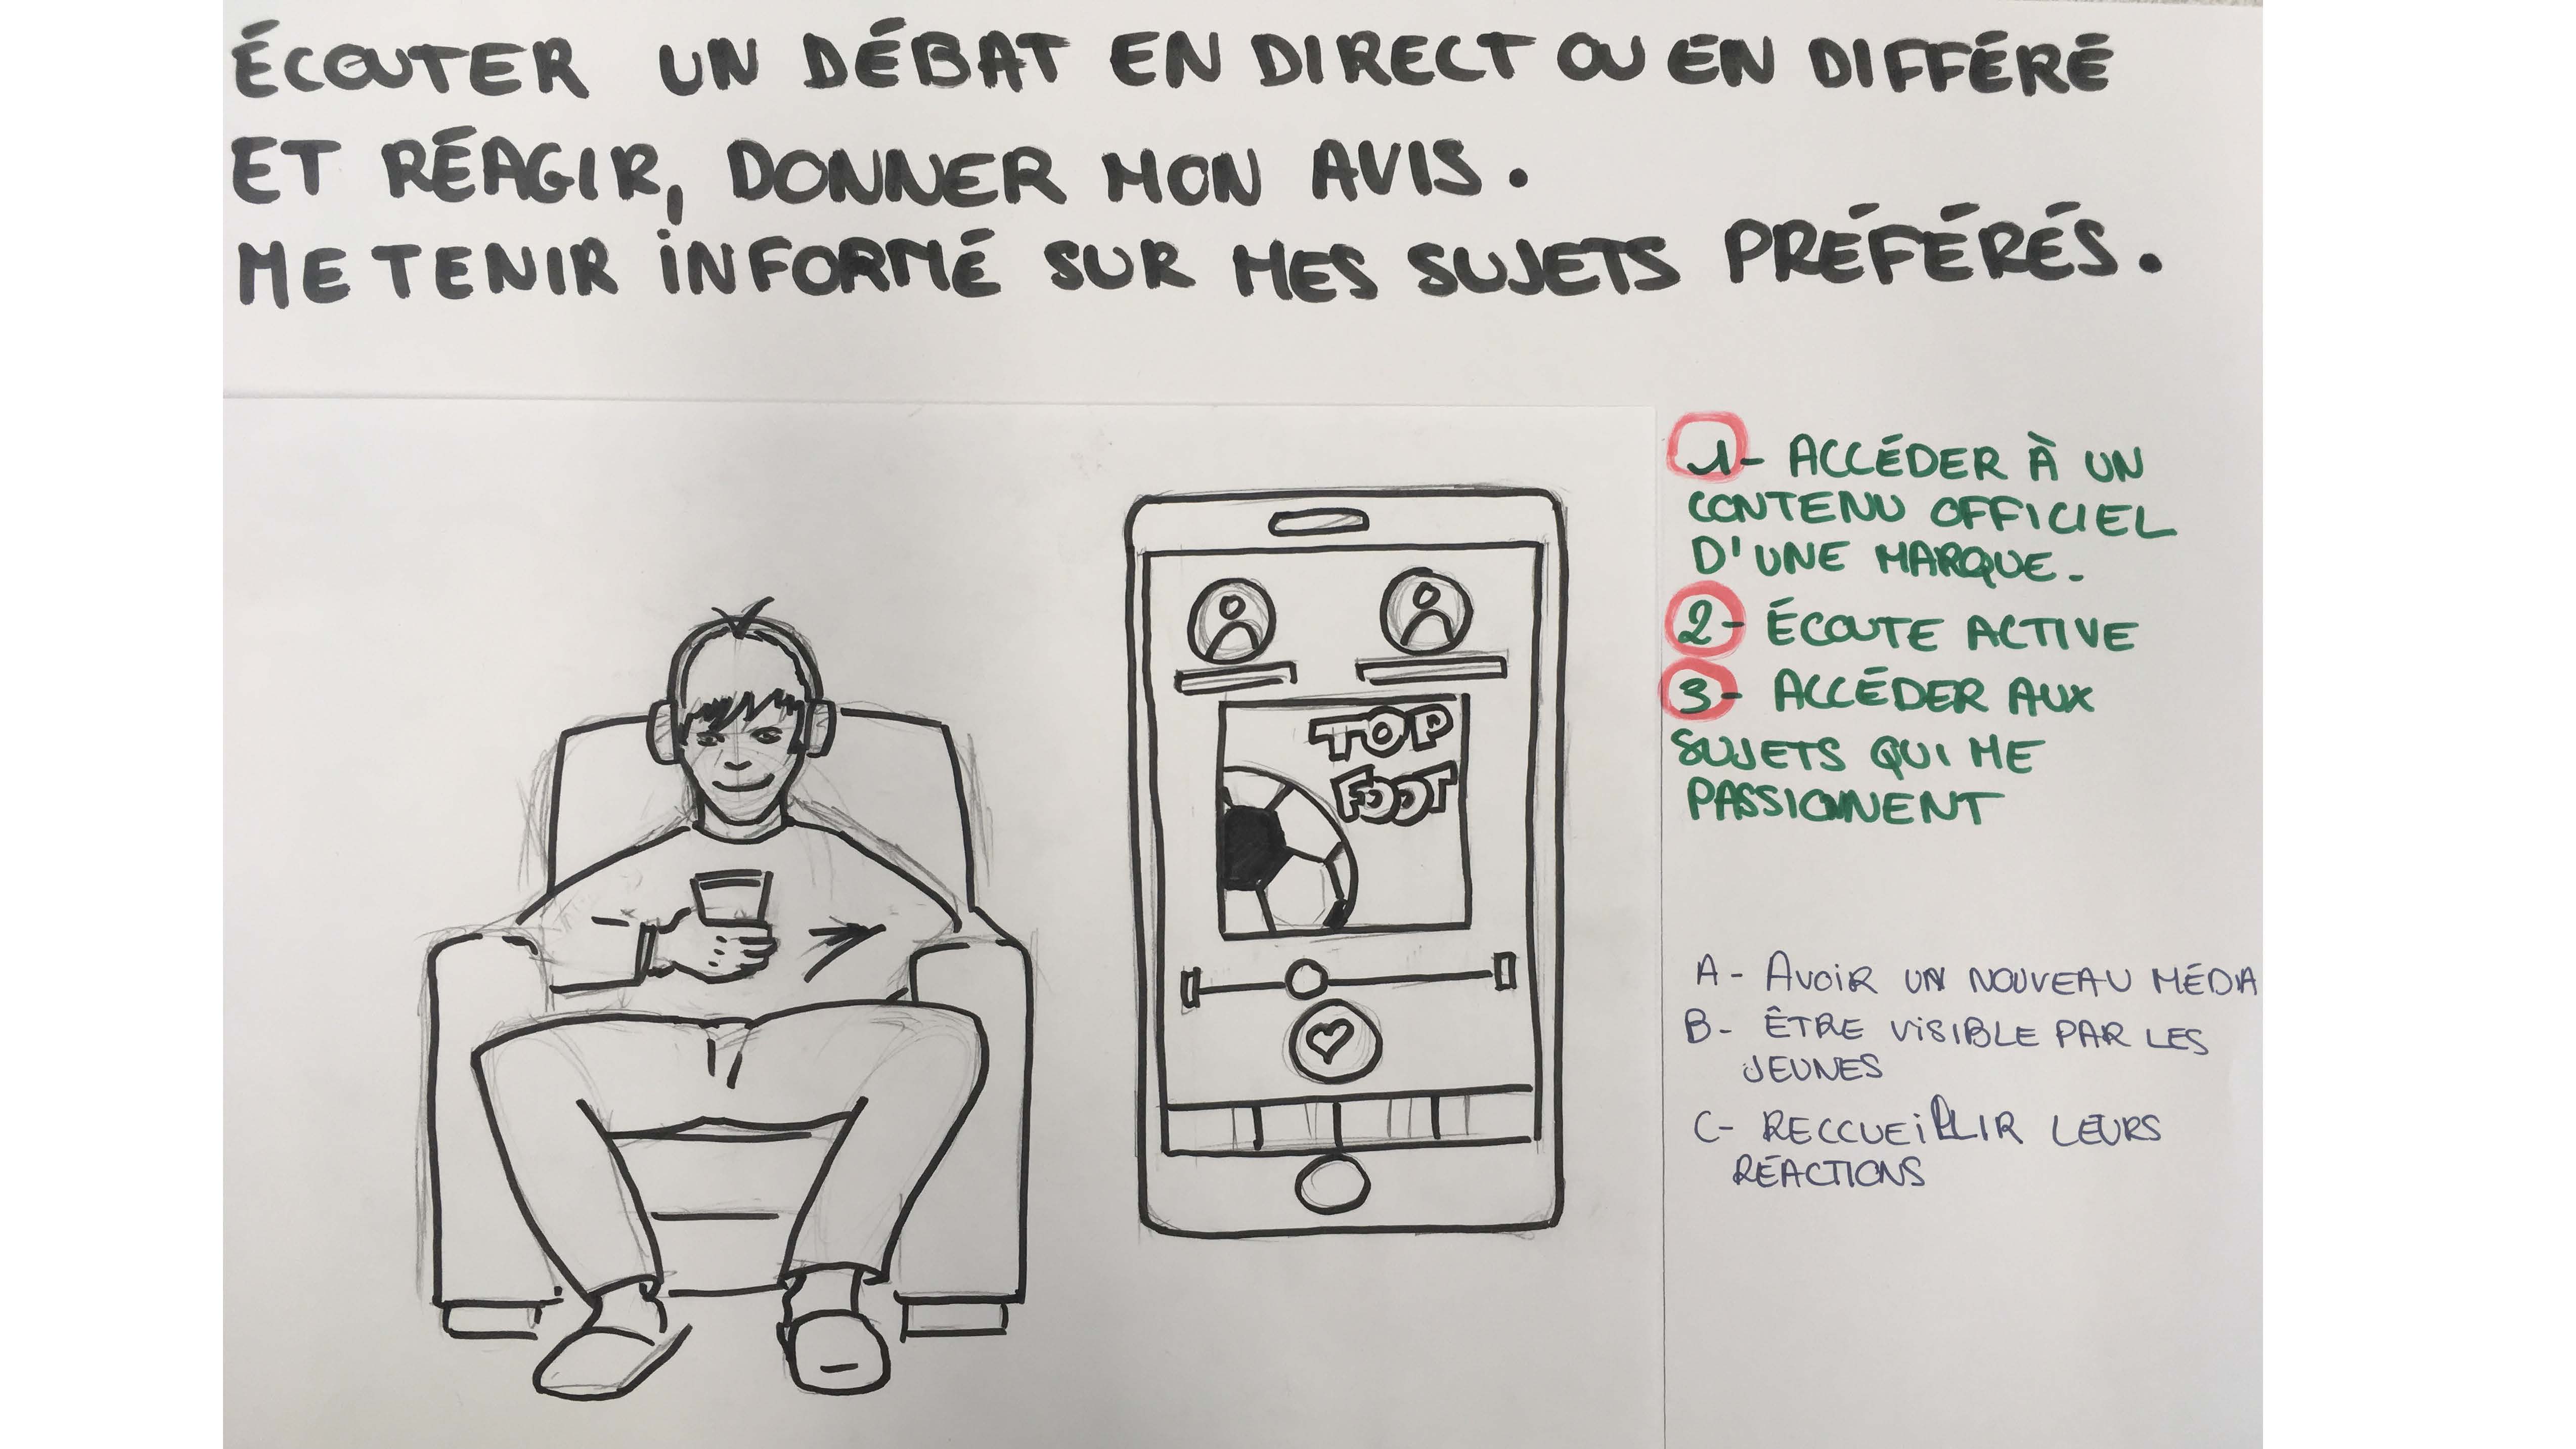 ÉCOUTER UN DÉBAT EN DIRECT OU EN DIFFÉRÉ
ET RÉAGIR, DONNER MON AVIS.
ME TENIR INFORMÉ SUR MES SUJETS PRÉFÉRÉS.
TOP
FOOT
1- ACCÉDER À UN
CONTENU OFFICIEL
D'UNE MARQUE.
2- ÉCOUTE ACTIVE
3- ACCÉDER AUX
SUJETS QUI ME
PASSIONNENT
A- AVOIR UN NOUVEAU MÉDIA
B- ÊTRE VISIBLE PAR LES
JEUNES
C- RECCUEILLIR LEURS
RÉACTIONS